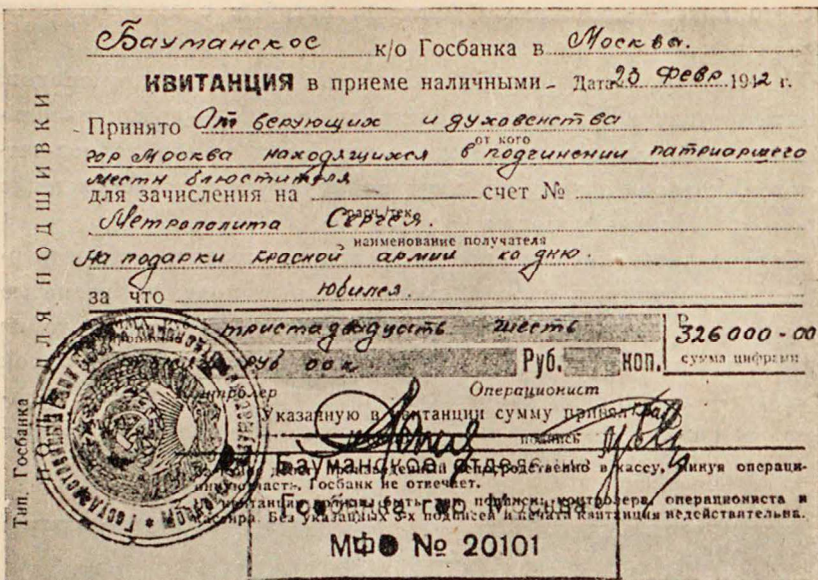 Бауманское к/о Госбанка в Москва.
КВИТАНЦИЯ в приеме наличными Дата 23 Февр 1942 г.
Принято От верующих и духовенства
от кого
гор Москва находящихся в подчинении патриаршего
Местн блюстителя
для зачисления на счет №
Митрополита Сергея.
наименование получателя
На подарки красной армии ко дню.
за что юбилея.
триста двадцать шесть
руб 00 к Руб. коп.
Р 326000-00
сумма цифрами
Контролер Операционист
Указанную в квитанции сумму принял
подпись
Бауманское отдел
в кассу, минуя операци-
часть, Госбанк не отвечает.
подписи: контролера, операциониста и
кассира. Без указанных 3-х подписей и печати квитанция недействительна.
Госбанка гор Москва
МФО № 20101
ДЛЯ ПОДШИВКИ
Тип. Госбанка